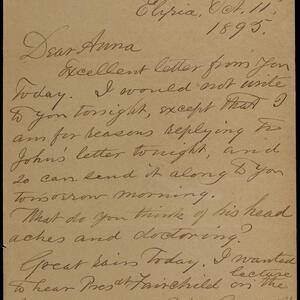 Elyria, Oct. 11,
1895.
Dear Anna
Excellent letter from you
Today. I would not write
to you tonight, except that I
am for reasons replying to
John's letter tonight, and
so can send it along to you
tomorrow morning.
What do you think of his head
aches and doctoring?
Great rain Today. I wanted
lecture
to hear Prest Fairchild on the